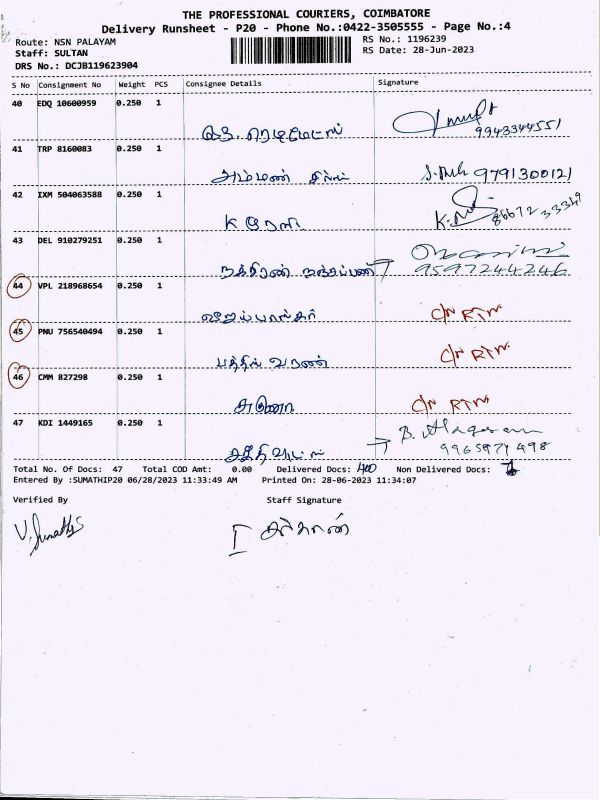 THE PROFESSIONAL COURIERS, COIMBATORE
Delivery Runsheet - P20 - Phone No.:0422-3505555 - Page No.:4
Route: NSN PALAYAM RS No.: 1196239
Staff: SULTAN RS Date: 28-Jun-2023
DRS No.: DCJB119623904
S No Consignment No Weight PCS Consignee Details Signature
40 EDQ 10600959 0.250 1
9943344551
41 TRP 8160083 0.250 1
அம்மன் 9791300121
42 IXM 504063588 0.250 1
K 86672 33349
43 DEL 910279251 0.250 1
9597244246
44 VPL 218968654 0.250 1
விஜய்பாஸ்கர் C/N RTN
45 PNU 756540494 0.250 1
C/N RTN
46 CMM 827298 0.250 1
C/N RTN
47 KDI 1449165 0.250 1
B. Alagesan
9965971498
Total No. Of Docs: 47 Total COD Amt: 0.00 Delivered Docs: Non Delivered Docs:
Entered By :SUMATHIP20 06/28/2023 11:33:49 AM Printed On: 28-06-2023 11:34:07
Verified By Staff Signature
V. Sumathi